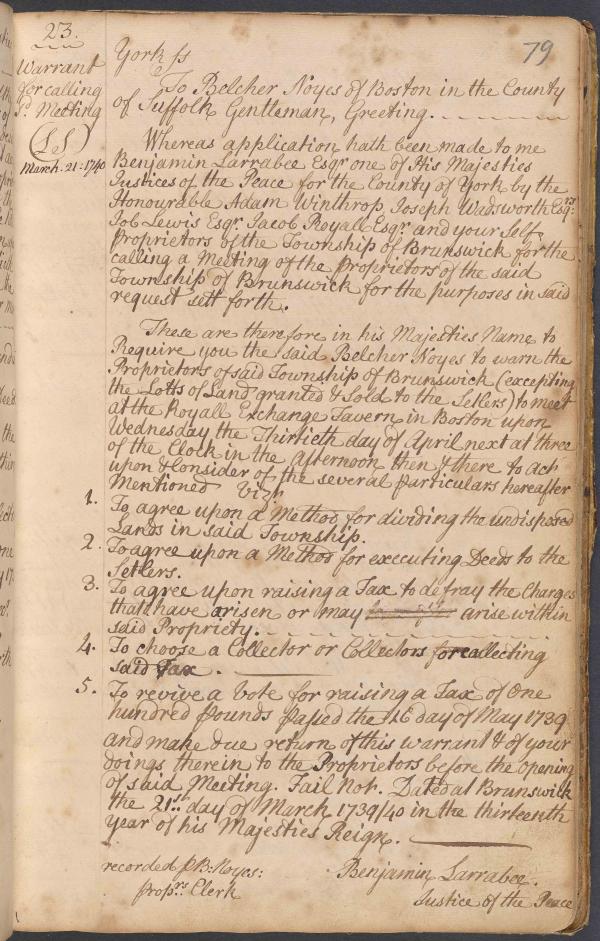 23.
79
Warrant
for calling
sd. Meeting
(LS)
March. 21: 1740
York ss
To Belcher Noyes of Boston in the County
of Suffolk Gentleman, Greeting.
Whereas application hath been made to me
Benjamin Larrabee Esqr one of His Majesties
Justices of the Peace for the County of York by the
Honourable Adam Winthrop Joseph Wadsworth Esqrs
Job Lewis Esqr. Jacob Royall Esqr and your Self
Proprietors of the Township of Brunswick for the
calling a Meeting of the Proprietors of the said
Township of Brunswick for the purposes in said
request sett forth.
These are therefore in his Majesties Name to
Require you the said Belcher Noyes to warn the
Proprietors of said Township of Brunswick (excepting
the Lotts of Land granted & Sold to the Setlers) to meet
at the Royall Exchange Tavern in Boston upon
Wednesday the Thirtieth day of April next at three
of the Clock in the Afternoon then & there to act
upon & Consider of the several particulars hereafter
Mentioned Vizt.
1. To agree upon a Method for dividing the undisposed
Lands in said Township.
2. To agree upon a Method for executing Deeds to the
Setlers.
3. To agree upon raising a Tax to defray the Charges
that have arisen or may arise within
said Propriety.
4. To choose a Collector or Collectors for collecting
said Tax.
5. To revive a Vote for raising a Tax of One
hundred pounds passed the 16 day of May 1739
and make due return of this warrant & of your
doings therein to the Proprietors before the opening
of said Meeting. Fail not. Dated at Brunswick
the 21st. day of March 1739/40 in the thirteenth
year of his Majesties Reign.
recorded p B: Noyes:
Proprs Clerk
Benjamin Larrabee.
Justice of the Peace